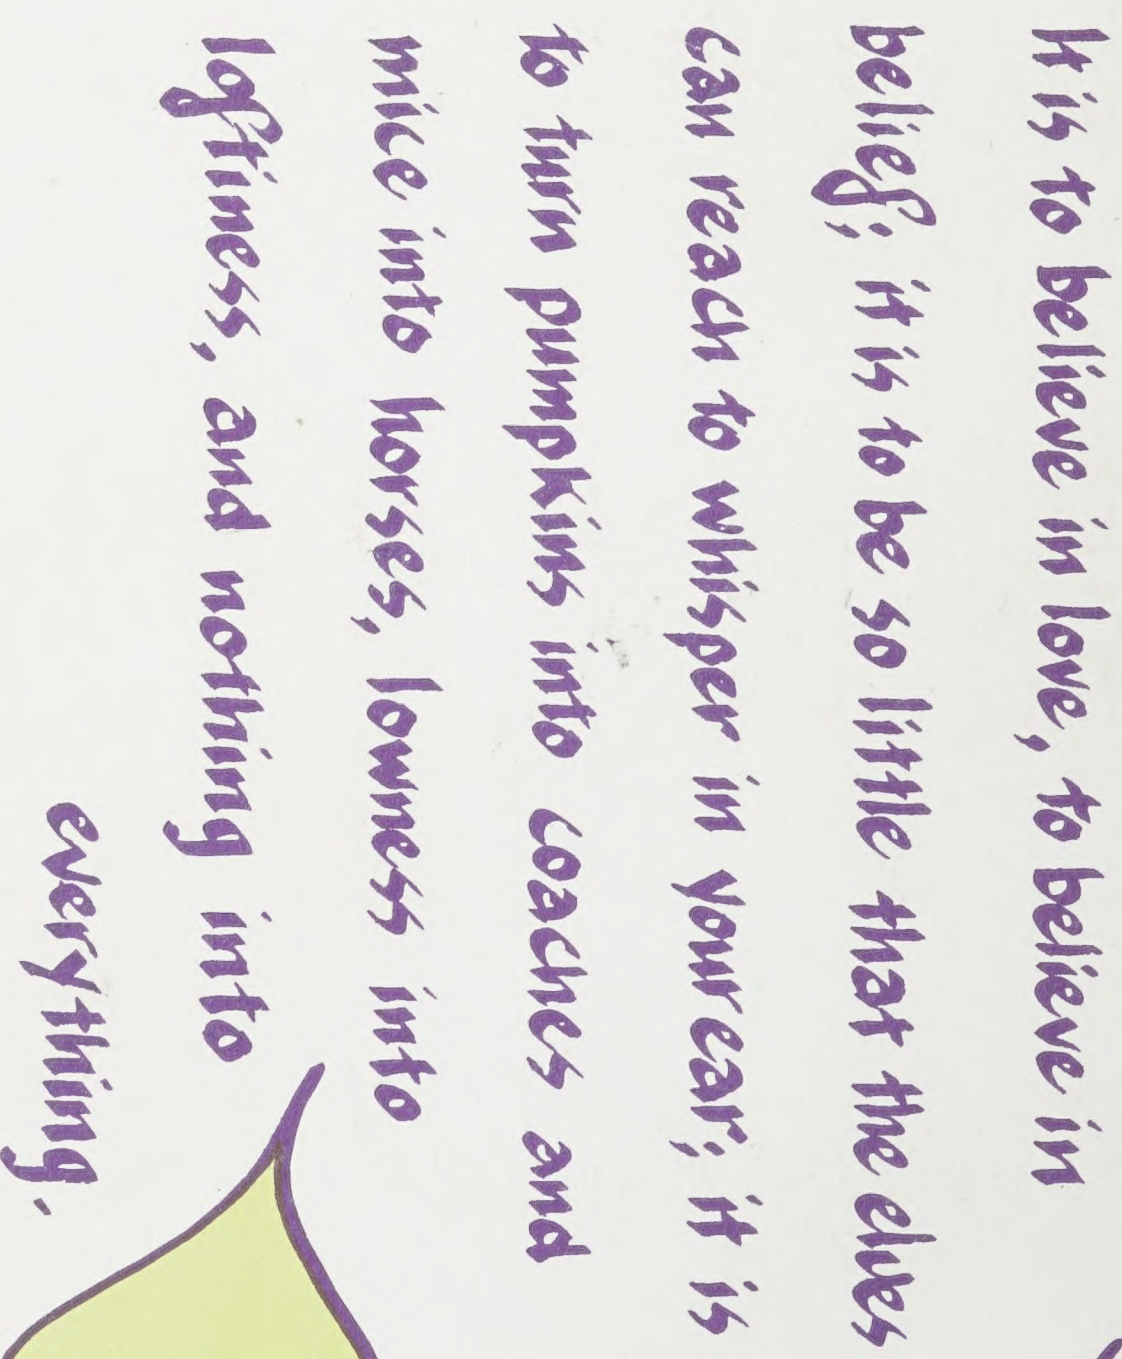 It is to believe in love, to believe in
belief; it is to be so little that the elves
can reach to whisper in your ear; it is
to turn pumpkins into coaches and
mice into horses, lowness into
loftiness, and nothing into
everything.